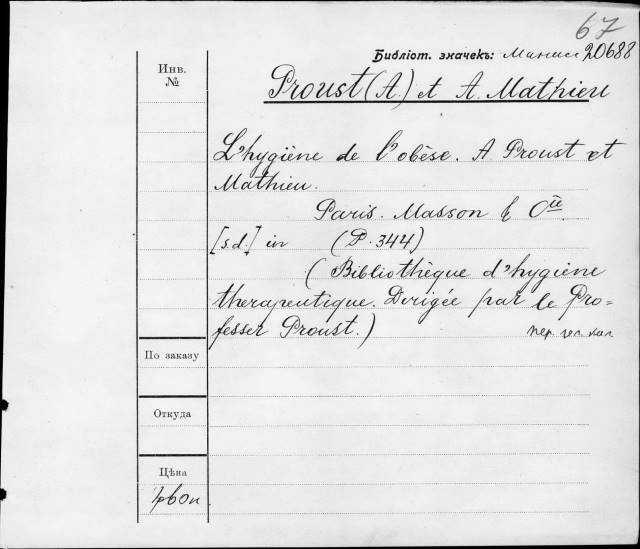 67
Библіот. значекъ: 20688
Инв.
№
Proust (A.) et A. Mathieu
L'hygiène de l'obèse. A Proust et
Mathieu.
Paris. Masson & Cie.
[s.d.] in (P. 344)
(Bibliothèque d'hygiène
therapeutique. Dirigée par le Pro=
fesser Proust.)
По заказу
Откуда
Цѣна